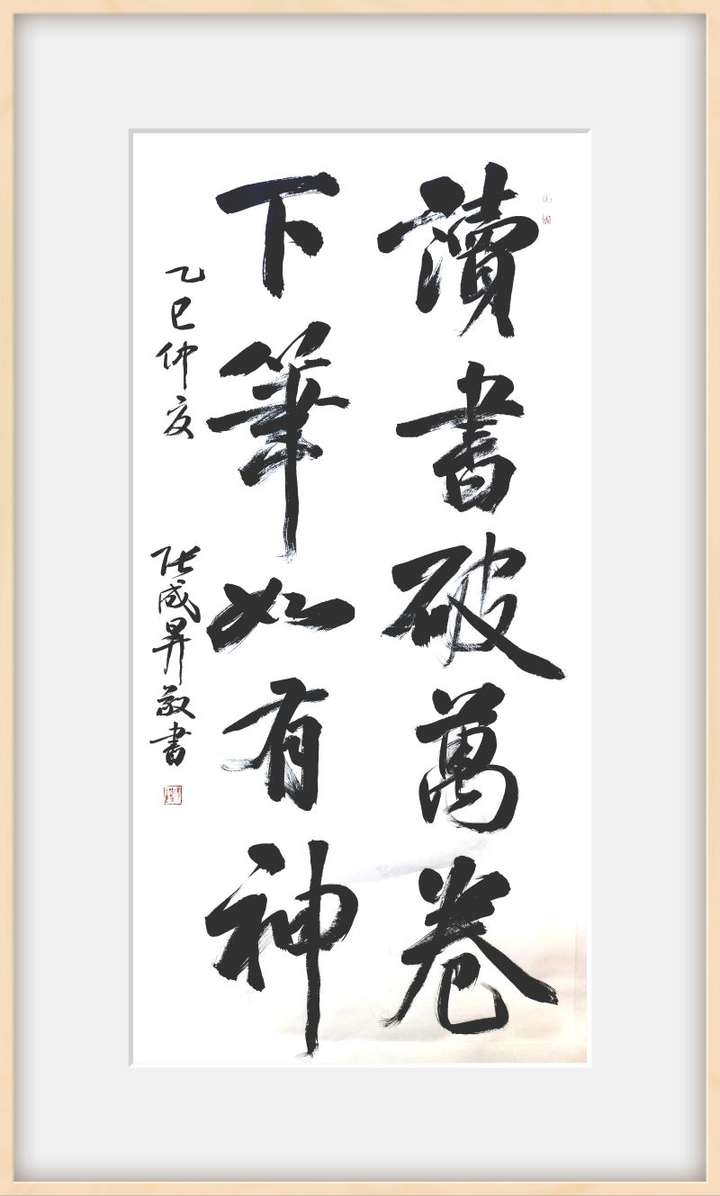 讀書破萬卷
下筆如有神
乙巳仲夏
张成昇敬書